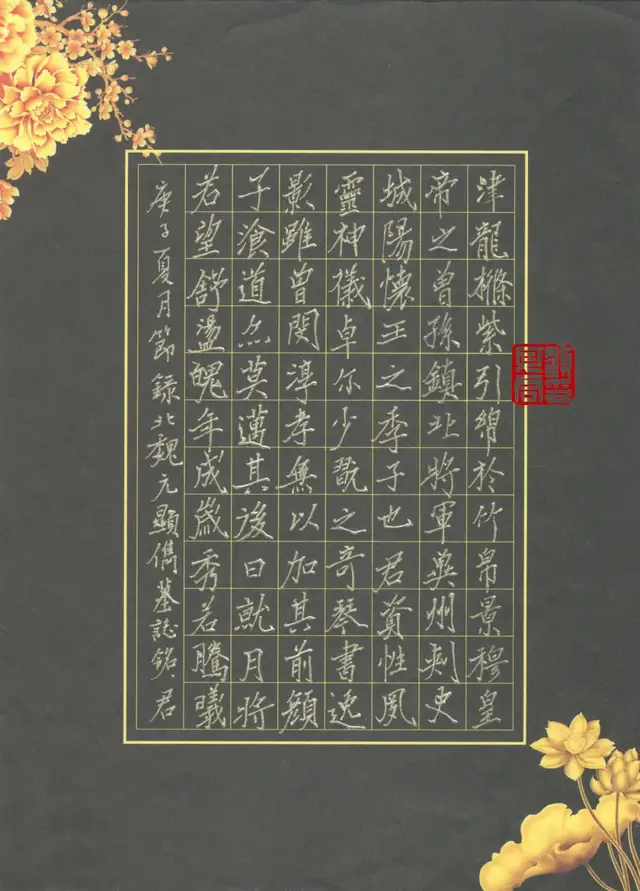 津龍樤紫引綿於竹帛景穆皇
帝之曾孫鎮北將軍冀州刺史
城陽懷王之季子也君資性夙
靈神儀卓尔少翫之奇琴書逸
影雖曾閔淳孝無以加其前顏
子湌道亦莫邁其後日就月將
若望舒盪魄年成歲秀若騰曦
庚子夏月節錄北魏元顯儁墓誌銘君